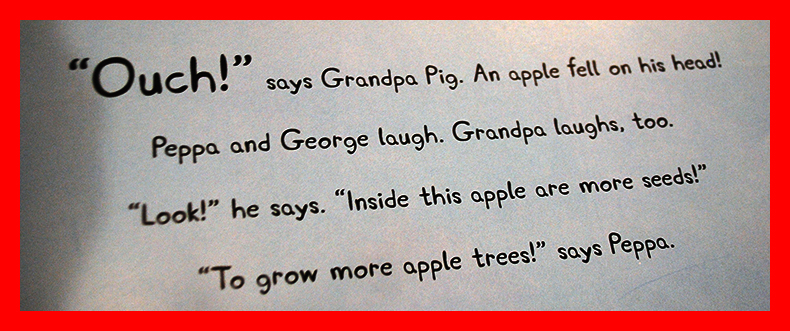 “Ouch!” says Grandpa Pig. An apple fell on his head!
Peppa and George laugh. Grandpa laughs, too.
“Look!” he says. “Inside this apple are more seeds!”
“To grow more apple trees!” says Peppa.